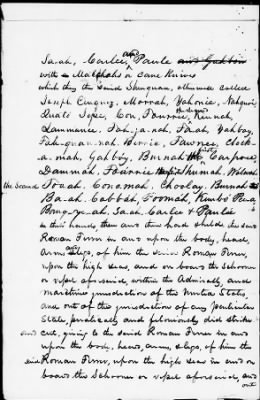 Saah, Carlee and Paule
with Malshahs or Cane Knives
which they the said Shinquau, otherwise called
Joseph Cinquez, Morrah, Yahonie, Nahquoi
Quato Sesse, Con, Fourrie, Kennah,
Lammanie, Fah-ja-nah, Faah, Yahboy,
Fah-quan-nah, Berrie, Fawnee, Chock-
a-mah, Gahboy, Burnah Carpree,
Dammah, Fourrie Shumah, Wilwah
the second Toach, Conomah, Choolay, Burnah
Baah, Cabbah, Poomah, Kimbo Peea
Bong-ye-ah, Saah, Carlee & Paule
in their hands then and there had & held the said
Roman Ferrer in and upon the body, head,
arms and legs, of him the said Roman Ferrer,
upon the high seas, and on board the Schooner
or vessel aforesaid, within the Admiralty and
maritime jurisdiction of the United States,
and out of the jurisdiction of any particular
State, piratically and feloniously did strike
and cut, giving to the said Roman Ferrer in and
upon the body, head, arms, & legs, of him the
said Roman Ferrer, upon the high seas in and on
board the Schooner or vessel aforesaid, and
out